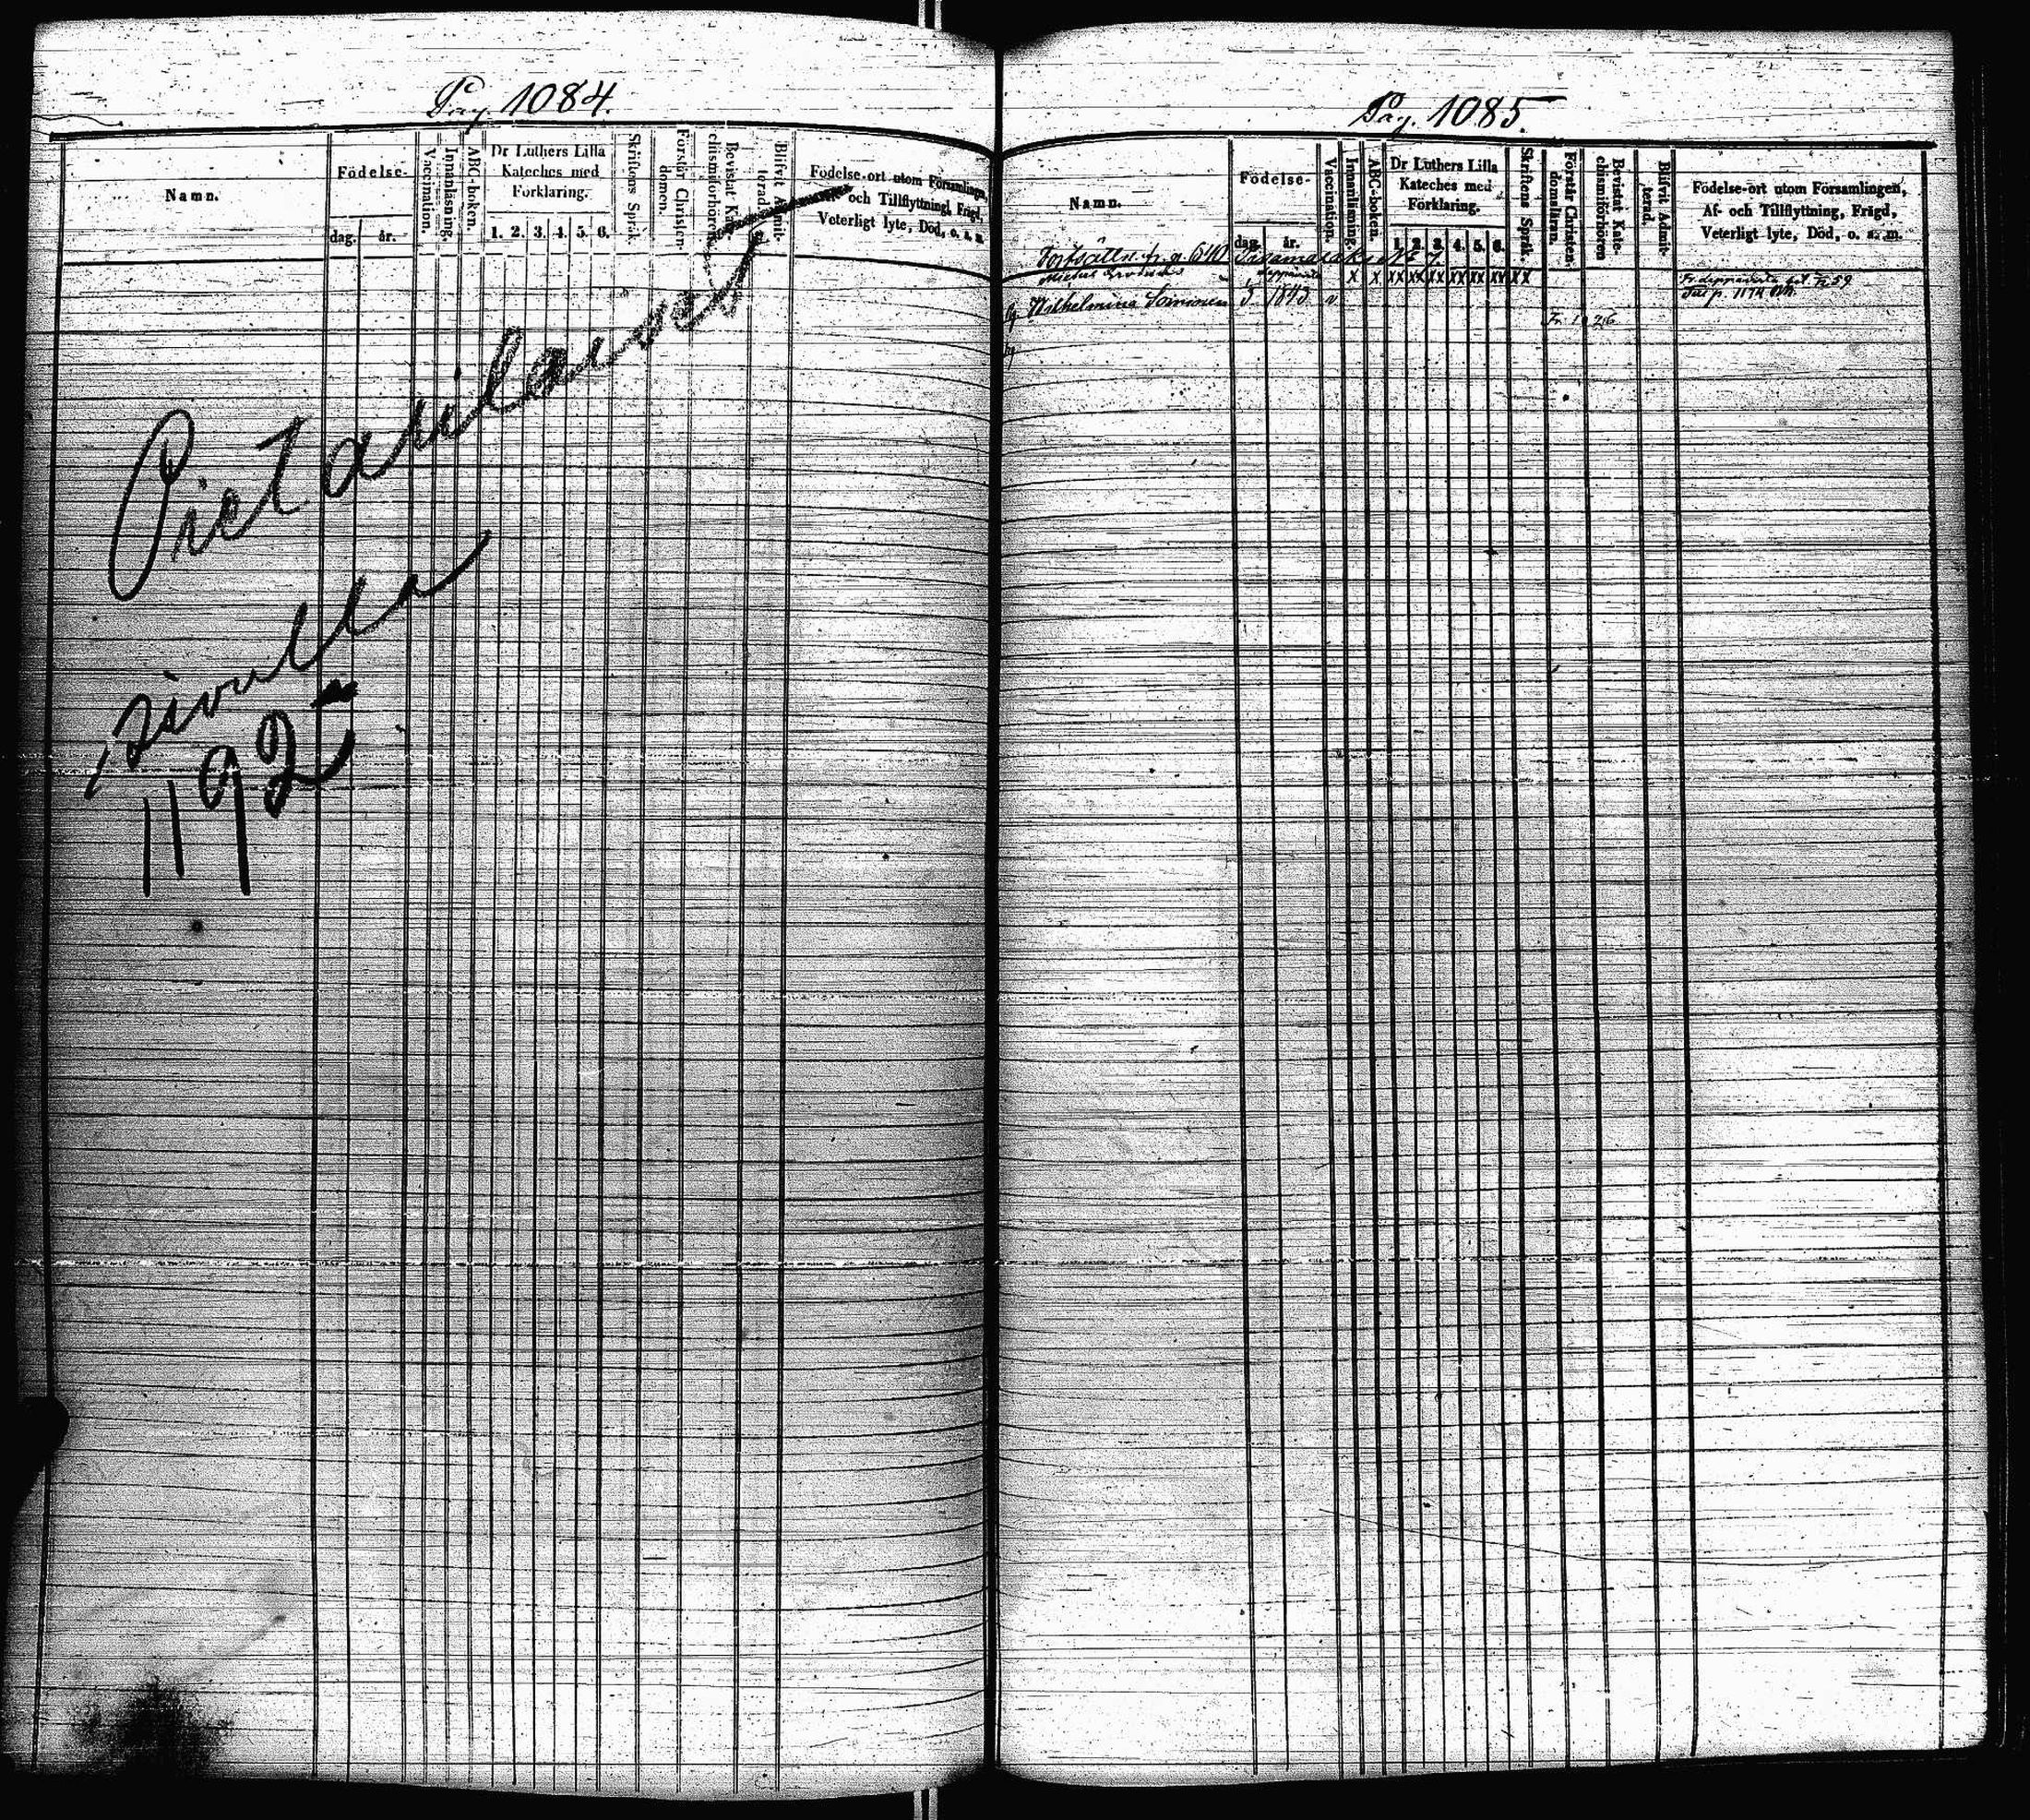 Pag. 1084.
Namn.
Födelse-
dag.
år.
Vaccination.
Innanläsning.
ABC-boken.
Dr Luthers Lilla
Kateches med
Förklaring.
1. 2. 3. 4. 5. 6.
Skriftens Språk.
Förstår Christen-
domen.
Bevistat Kate-
chismiförhören
Blifvit Admit-
terad.
Födelse-ort utom Församlingen,
och Tillflyttning, Frägd,
Veterligt lyte, Död, o. s. m.
sivulla
1192
Pag. 1085.
Namn.
Födelse-
dag.
år.
Vaccination.
Innanläsning.
ABC-boken.
Dr Luthers Lilla
Kateches med
Förklaring.
1. 2. 3. 4. 5. 6.
Skriftens Språk.
Förstår Christen-
domsläran.
Bevistat Kate-
chismiförhören
Blifvit Admit-
terad.
Födelse-ort utom Församlingen,
Af- och Tillflyttning, Frägd,
Veterligt lyte, Död, o. s. m.
640
X X XX XX XX XX XX XX XX
59
Wilhelmina Soininen 1843 v